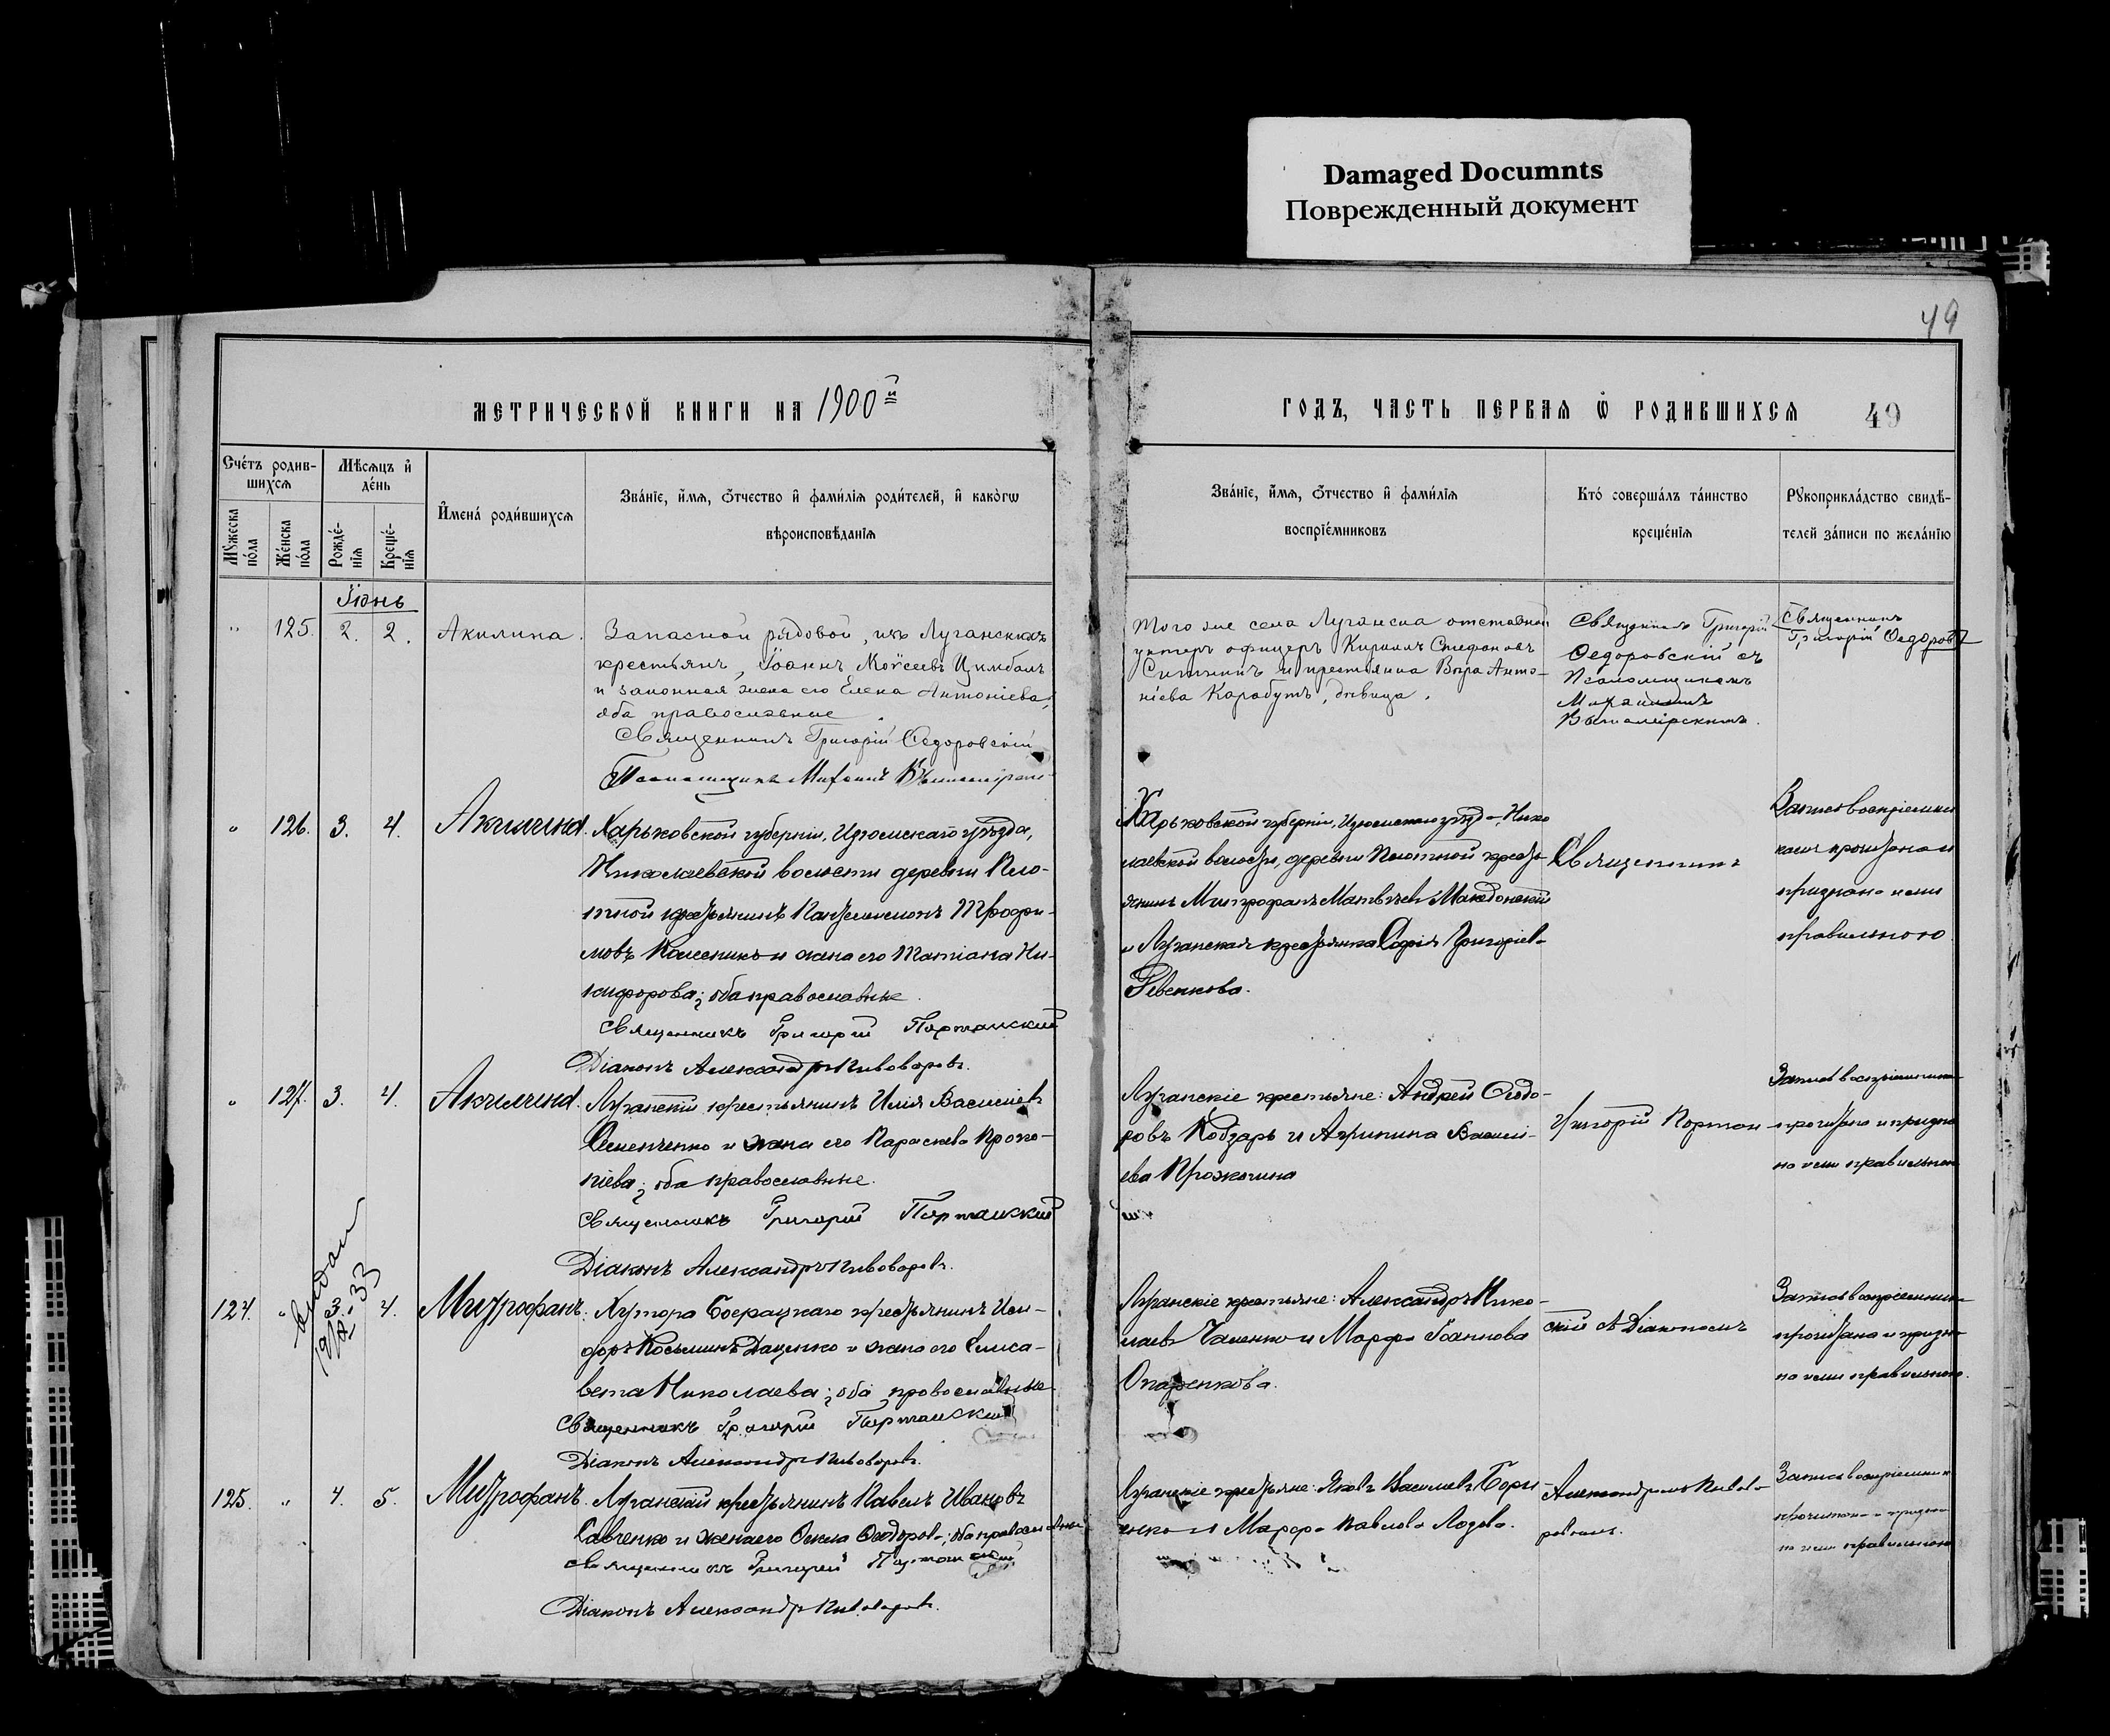 Damaged Documnts
Поврежденный документ
49
МЕТРИЧЕСКОЙ КНИГИ НА 1900й
ГОДЪ, ЧАСТЬ ПЕРВАЯ Ѡ РОДИВШИХСЯ 49
Счетъ родив-
шихся
Мѣсяцъ и
день
Мужеска
пола
Женска
пола
Рожде-
нія
Креще-
нія
Имена родившихся
Званіе, имя, отчество и фамилія родителей, и какогѡ
вѣроисповѣданія
Званіе, имя, отчество и фамилія
воспріемниковъ
Кто совершалъ таинство
крещенія
Рукоприкладство свидѣ-
телей записи по желанію
Іюнь
" 125. 2. 2. Акилина.
Запасной рядовой, изъ Луганскихъ
крестьянъ, Іоаннъ Моѵсеевъ Цимбалъ
и законная жена его Елена Антоніева,
оба православные
Священникъ Григорій Ѳедоровскій
Псаломщикъ Михаилъ
Того же села Луганска отставной
унтеръ офицеръ Кириллъ Стефановъ
Ситникъ и крестьянка Вѣра Анто-
ніева Карабутъ, дѣвица.
Священникъ Григорій
Ѳедоровскій съ
Псаломщикомъ
Михаиломъ
Священникъ
Григорій
" 126. 3. 4. Акилина.
Харьковской губерніи, Изюмскаго уѣзда,
Николаевской волости деревни Пло-
тной крестьянинъ Пантелеимонъ Трофи-
мовъ Колесникъ и жена его Татіана Ни-
кифорова; оба православные.
Священникъ Григорій Порталскій
Діаконъ Александръ Пивоваровъ.
Харьковской губерніи, Изюмскаго уѣзда, Нико
лаевской волости, деревни Плотной кресть-
янинъ Митрофанъ Матвѣевъ Македонскій
и Луганская крестьянка Софія Григоріева
Ревенкова.
Священникъ
Запись воспріемни
камъ прочитана и
признана ими
правильною
" 127. 3. 4. Акилина.
Луганскій крестьянинъ Илія Василіевъ
Семенченко и жена его Параскева Проко-
піева; оба православные.
Священникъ Григорій Порталскій
Діаконъ Александръ Пивоваровъ.
Луганскіе крестьяне: Андрей Сидо-
ровъ Кобзарь и Агрипина Василі-
ева
Григорій
Запись воспріемникамъ
прочитана и призна
на ими правильною
выдан
124. " 3. 4. Митрофанъ.
Хутора крестьянинъ Иси-
доръ Косьминъ Даценко и жена его Елиса-
вета Николаева; оба православные
Священникъ Григорій Порталскій
Діаконъ Александръ Пивоваровъ.
Луганскіе крестьяне: Александръ Нико-
лаевъ Чаленко и Марфа Іоаннова
скій съ Діакономъ
Запись воспріемникамъ
прочитана и призна
на ими правильною.
125. " 4. 5. Митрофанъ.
Луганскій крестьянинъ Павелъ Ивановъ
Савченко и жена его Ѳекла Ѳеодорова; оба православные
Священникъ Григорій Порталскій
Діаконъ Александръ Пивоваровъ.
Луганскіе крестьяне: Яковъ Василіевъ Бори
енко и Марфа Павлова
Александромъ Пивова-
ровымъ.
Запись воспріемникамъ
прочитана и призна
на ими правильною